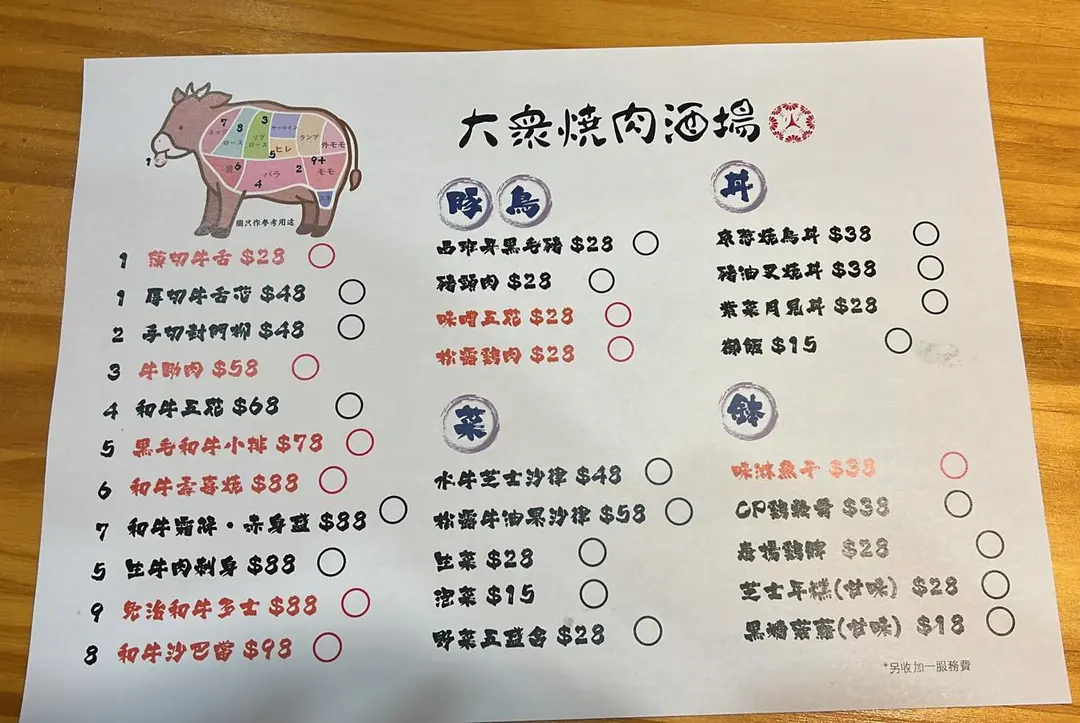 大衆燒肉酒場
火
7 ミスジ
8 ロース
3 リブロース
サーロイン
ランプ
5 ヒレ
外モモ
6 肩
4 バラ
2
9+ モモ
1
圖只作參考用途
1 薄切牛舌 $28
1 厚切牛舌芯 $48
2 手切封門柳 $48
3 牛肋肉 $58
4 和牛五花 $68
5 黑毛和牛小排 $78
6 和牛壽喜燒 $88
7 和牛霜降・赤身盛 $88
5 生牛肉刺身 $88
9 免治和牛多士 $88
8 和牛沙巴當 $98
豚鳥
西班牙黑毛豬 $28
豬頸肉 $28
味噌五花 $28
松露雞肉 $28
菜
水牛芝士沙律 $48
松露牛油果沙律 $58
生菜 $28
泡菜 $15
野菜五盛合 $28
丼
京葱燒鳥丼 $38
豬油叉燒丼 $38
紫菜月見丼 $28
御飯 $15
鉢
味淋魚干 $38
CP雞軟骨 $38
唐揚雞髀 $28
芝士年糕(甘味) $28
黑糖蕨餅(甘味) $18
*另收加一服務費